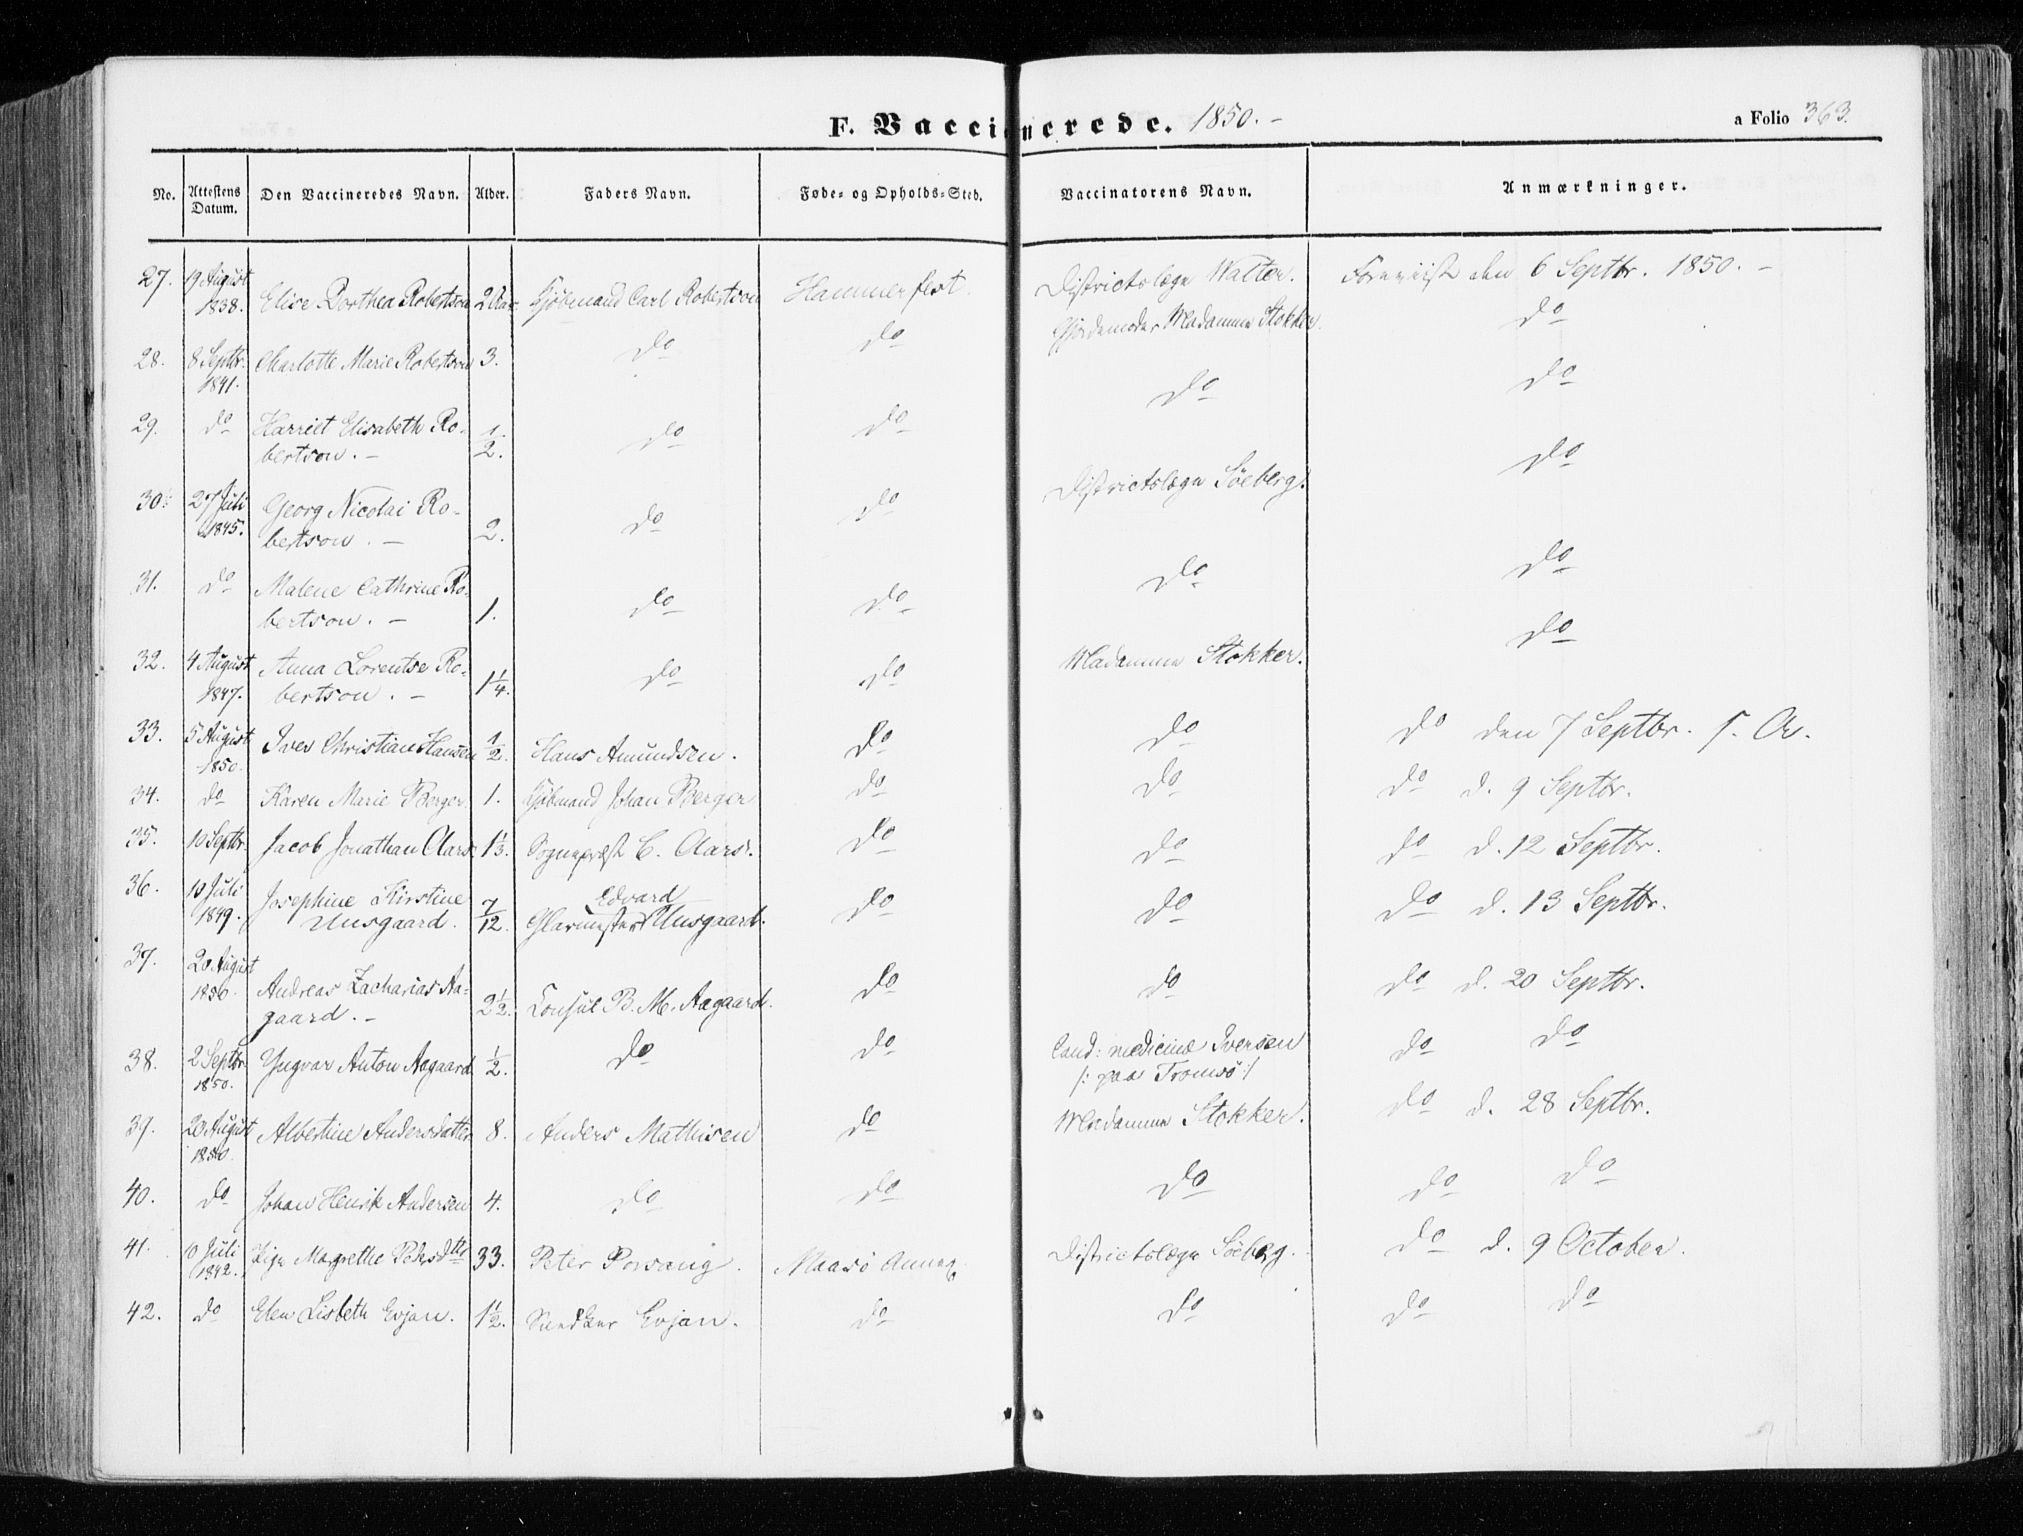 F. Vaccinerede. 1850.-
a Folio 363.
No. Attestens Datum. Den Vaccineredes Navn. Alder. Faders Navn. Føde- og Opholds-Sted. Vaccinatorens Navn. Anmærkninger.
27. 19 August 1838. Elise Dorthea Robertson 2 Aar Kjøbmand Carl Robertson Hammerfest. Districtslæge Walter. Foreviist den 6 Septbr. 1850. -
28. 8 Septbr. 1841. Charlotte Marie Robertson 3. do do Gjordemoder Madamme Stokker. do
29. do Harriet Elisabeth Ro-
bertson. - 1/2. do do do do
30. 27 Juli 1845. Georg Nicolai Ro-
bertson. - 2. do do Districtslæge Söeberg. do
31. do Malene Cathrine Ro-
bertson. - 1. do do do do
32. 4 August 1847. Anna Lorentse Ro-
bertson. - 1 1/4. do do Madamme Stokker. do
33. 5 August 1850. Iver Christian Hansen 1/2. Hans Amundsen. do do do den 7 Septbr. s. A.
34. do Karen Marie Berger. 1. Kjøbmand Johan Berger do do do d. 9 Septbr.
35. 10 Septbr. Jacob Jonathan Aars. 1 1/3. Sognepræst C. Aars. do do do d. 12 Septbr.
36. 10 Juli 1849. Josephine Kirstine
Unsgaard. 7/12. Glarmester Edvard Unsgaard. do do do d. 13 Septbr.
37. 20 August 1850. Andreas Zacharias Aa-
gaard. - 2 1/2. Consul B. M. Aagaard. do do do d. 20 Septbr.
38. 2 Septbr 1850. Yngvar Anton Aagaard 1/2. do do Cand: medicinæ Iversen
/: paa Tromsö :/ do do
39. 20 August 1850. Albertine Andersdatter 8. Anders Mathisen do Madamme Stokker. do d. 28 Septbr.
40. do Johan Henrik Andersen 4. do do do do do
41. 10 Juli 1842. Margrethe Pedersdtr 33. Peter Porsang. Maasö Annex. Districtslæge Söeberg. do d. 9 October.
42. do Elen Lisbeth Evjan. 1 1/2. Evjan. do do do do